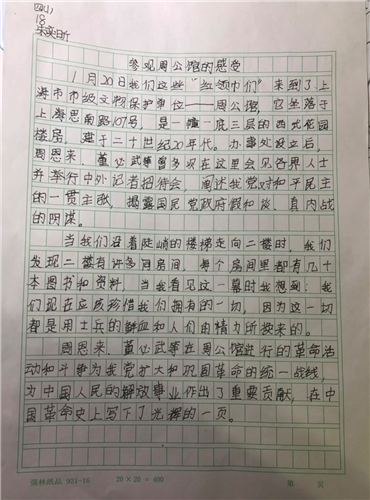 四(1)
18
参观周公馆的感受
1月20日我们这些“红领巾们”来到了上
海市市级文物保护单位——周公馆 它坐落于
上海思南路107号,是一幢一底三层的西式花园
楼房,建于二十世纪20年代。办事处设立后,
周恩来、董必武等曾多次在这里会见各界人士
并举行中外记者招待会,阐述我党对和平民主
的一贯主张,揭露国民党政府假和谈、真内战
的阴谋。
当我们沿着陡峭的楼梯走向二楼时,我们
发现二楼有许多间房间,每个房间里都有几十
本图书和资料 当我看见这一幕时我想到:我
们现在应该珍惜我们拥有的一切,因为这一切
都是用士兵的鲜血和人们的精力所换来的。
周恩来、董必武等在周公馆进行的革命活
动和斗争为我党扩大和巩固革命的统一战线,
为中国人民的解放事业作出了重要贡献,在中
国革命史上写下了光辉的一页。
儒林纸品 921-16 20×20=400 第 页